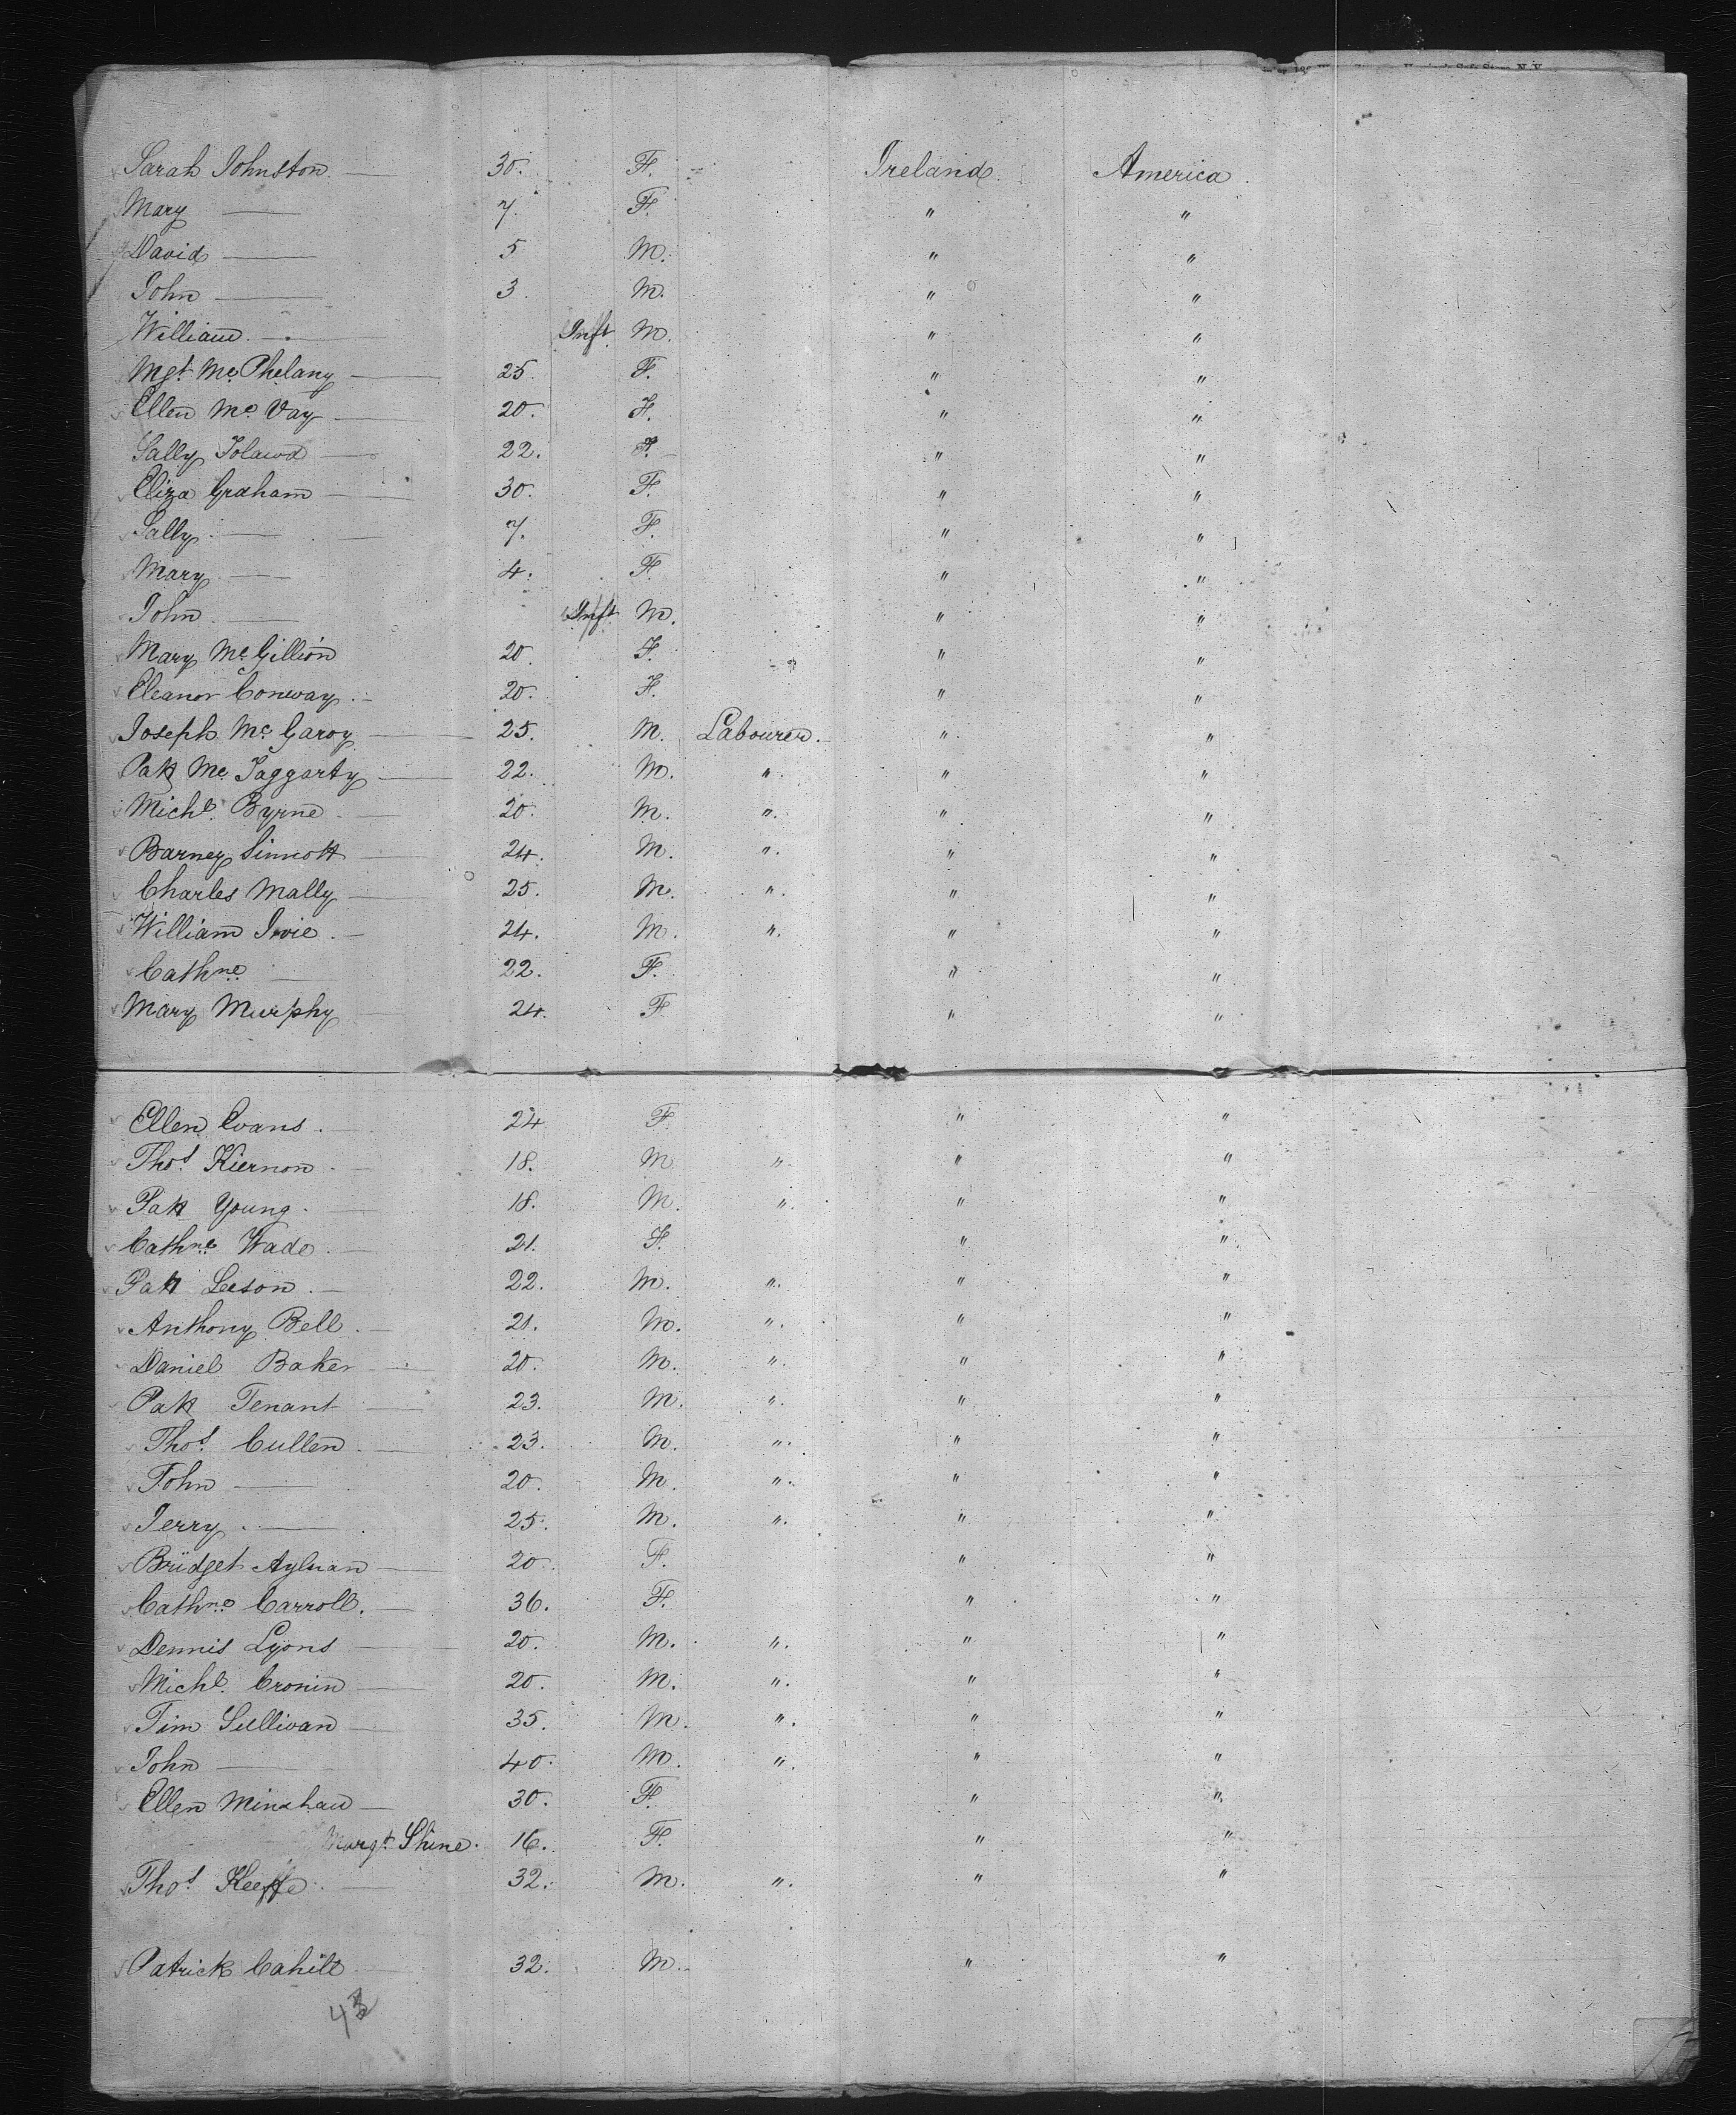 Sarah Johnston. — 30. F. Ireland. America.
Mary — 7. F. " "
David — 5 M. " "
John — 3. M. " "
William. — Inft. M. " "
Mgt. Mc Phelany — 25. F. " "
Ellen Mc Vay — 20. F. " "
Sally — 22. F. " "
Eliza Graham — 30. F. " "
Sally. — 7. F. " "
Mary. — 4. F. " "
John. — Inft M. " "
Mary Mc Gillion 20. F. " "
Eleanor Conway. — 20. F. " "
Joseph Mc Garvy — 25. M. Labourer. " "
Patk Mc Taggarty — 22. M. " " "
Michl. Byrne. — 20. M. " " "
Barney Sinnott — 24. M. " " "
Charles Mally — 25. M. " " "
William Irvie. — 24. M. " " "
Cathne — 22. F. " "
Mary Murphy — 24. F " "
Ellen Evans. — 24 F. " "
Thos. Kiernon. — 18. M " " "
Patk Young. — 18. M. " " "
Cathne. Wade. — 21. F. " "
Patk Leeson. — 22. M. " " "
Anthony Bell. — 21. M. " " "
Daniel Baker — 20. M. " " "
Patk Tenant — 23. M. " " "
Thos. Cullen. — 23. M. " " "
John — 20. M. " " "
Jerry. — 25. M. " " "
Bridget Aylman — 20. F. " "
Cathne. Carroll. — 36. F. " "
Dennis Lyons — 20. M. " " "
Michl. Cronin — 20. M. " " "
Tim Sullivan — 35. M. " " "
John — 40. M. " " "
Ellen Minahan — 30. F. " "
Margt. Shine. 16. F. " "
Thos. Keeffe. — 32. M. " " "
Patrick Cahill. — 32. M. " "
43